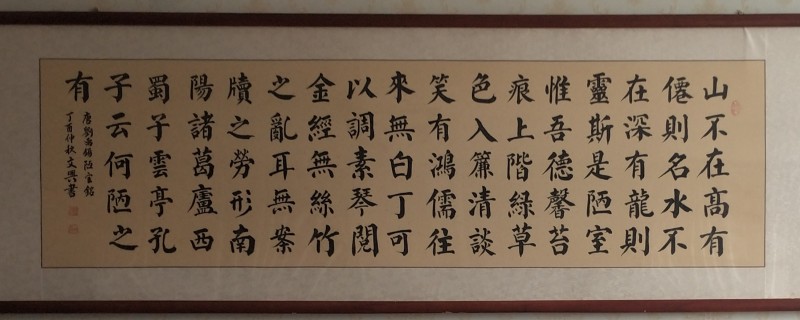 山不在高有
僊則名水不
在深有龍則
靈斯是陋室
惟吾德馨苔
痕上階綠草
色入簾清談
笑有鴻儒往
來無白丁可
以調素琴閱
金經無絲竹
之亂耳無案
牘之勞形南
陽諸葛廬西
蜀子雲亭孔
子云何陋之
有
唐劉禹錫陋室銘
丁酉仲秋文興書